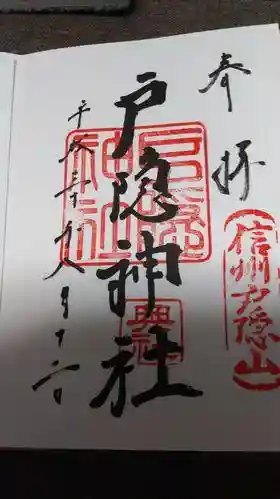 奉拝
信州戸隠山
戸隠神社
戸隠神社
奥社
平成三十年八月十二日